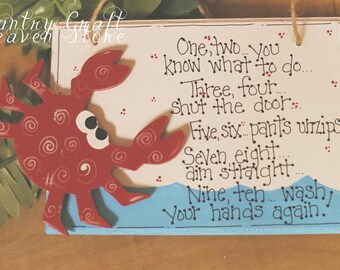 Country Craft
Heaven Store
One, two... you
know what to do...
Three, four...
shut the door...
Five, six... pants unzips
Seven, eight
aim straight...
Nine, ten... wash
your hands again!